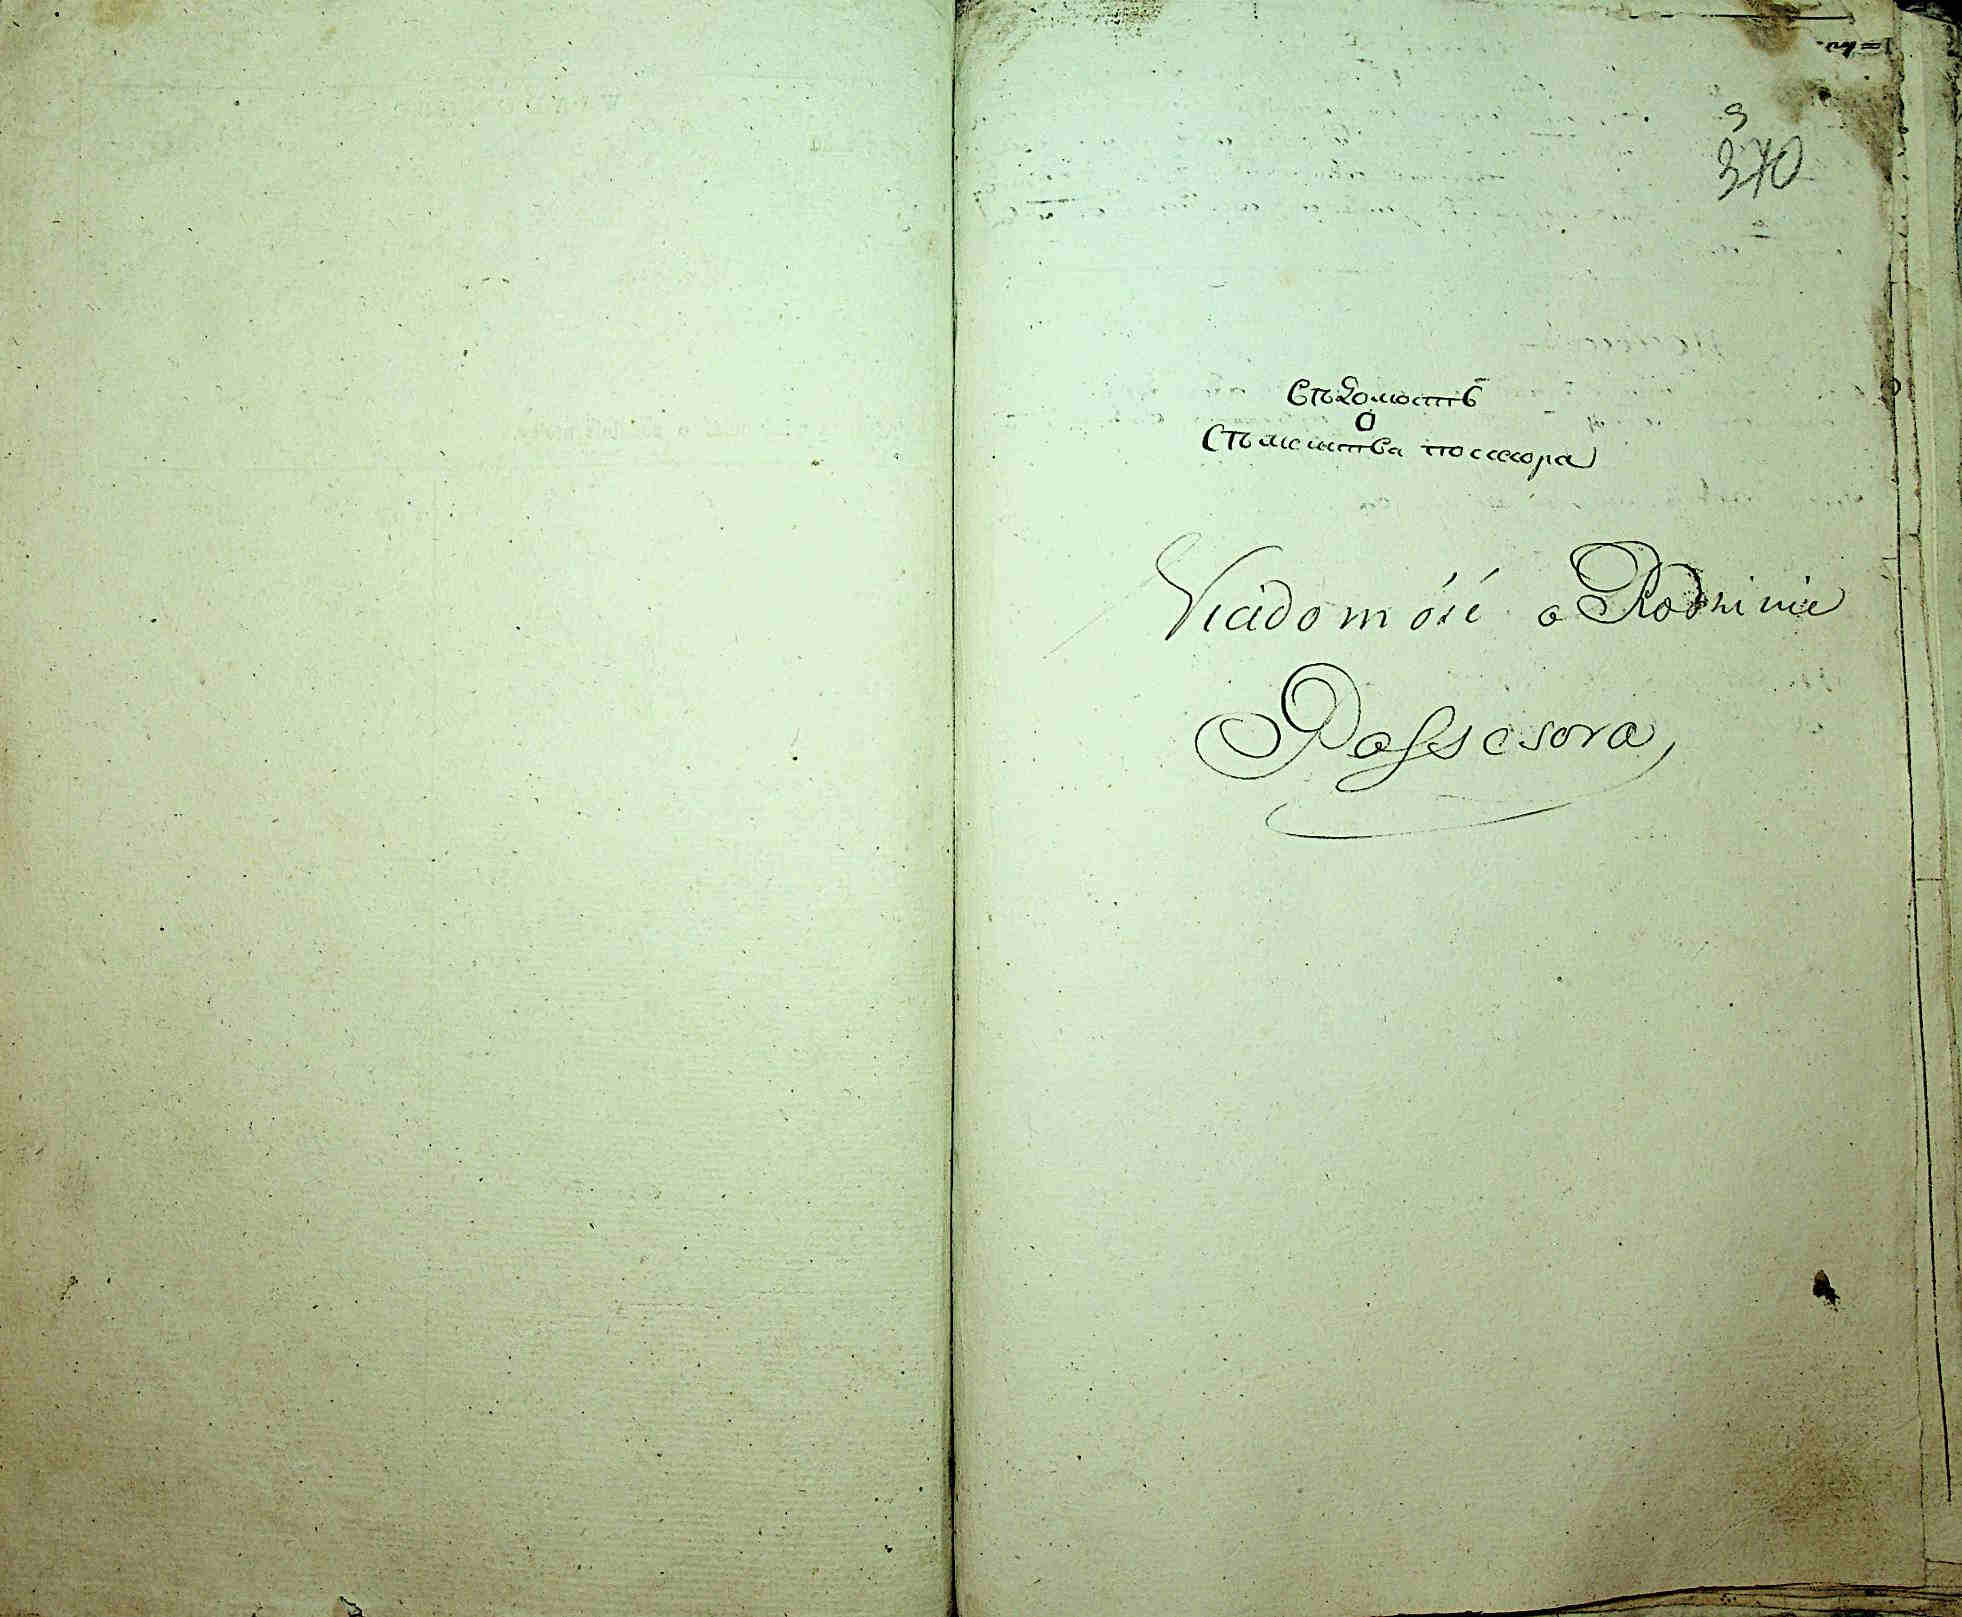 9
370
Вѣдомость
О
Сѣмейства поссесора
Wiadomość o Rodzinie
Possesora